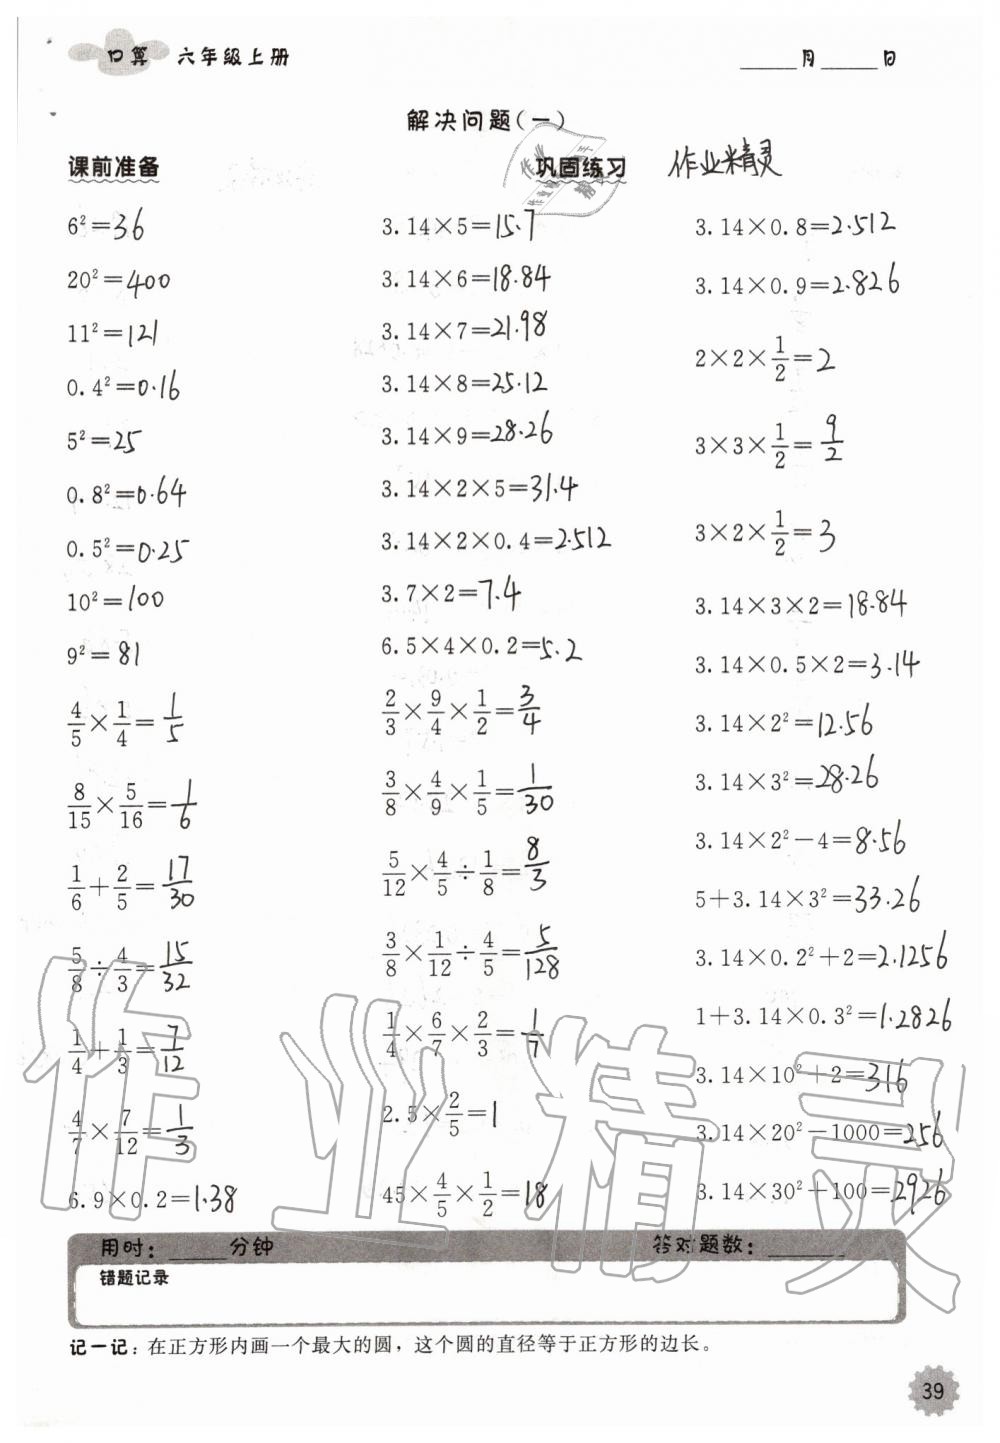 口算 六年级上册
____月____日
解决问题(一)
课前准备
6²=36
20²=400
11²=121
0.4²=0.16
5²=25
0.8²=0.64
0.5²=0.25
10²=100
9²=81
4/5×1/4=1/5
8/15×5/16=1/6
1/6+2/5=17/30
5/8÷4/3=15/32
1/4+1/3=7/12
4/7×7/12=1/3
6.9×0.2=1.38
3.14×5=15.7
3.14×6=18.84
3.14×7=21.98
3.14×8=25.12
3.14×9=28.26
3.14×2×5=31.4
3.14×2×0.4=2.512
3.7×2=7.4
6.5×4×0.2=5.2
2/3×9/4×1/2=3/4
3/8×4/9×1/5=1/30
5/12×4/5÷1/8=8/3
3/8×1/12÷4/5=5/128
1/4×6/7×2/3=1/7
2.5×2/5=1
45×4/5×1/2=18
巩固练习 作业精灵
3.14×0.8=2.512
3.14×0.9=2.826
2×2×1/2=2
3×3×1/2=9/2
3×2×1/2=3
3.14×3×2=18.84
3.14×0.5×2=3.14
3.14×2²=12.56
3.14×3²=28.26
3.14×2²-4=8.56
5+3.14×3²=33.26
3.14×0.2²+2=2.1256
1+3.14×0.3²=1.2826
3.14×10²+2=316
3.14×20²-1000=256
3.14×30²+100=2926
作业精灵
用时：____分钟 答对题数：____
错题记录
记一记：在正方形内画一个最大的圆，这个圆的直径等于正方形的边长。
39